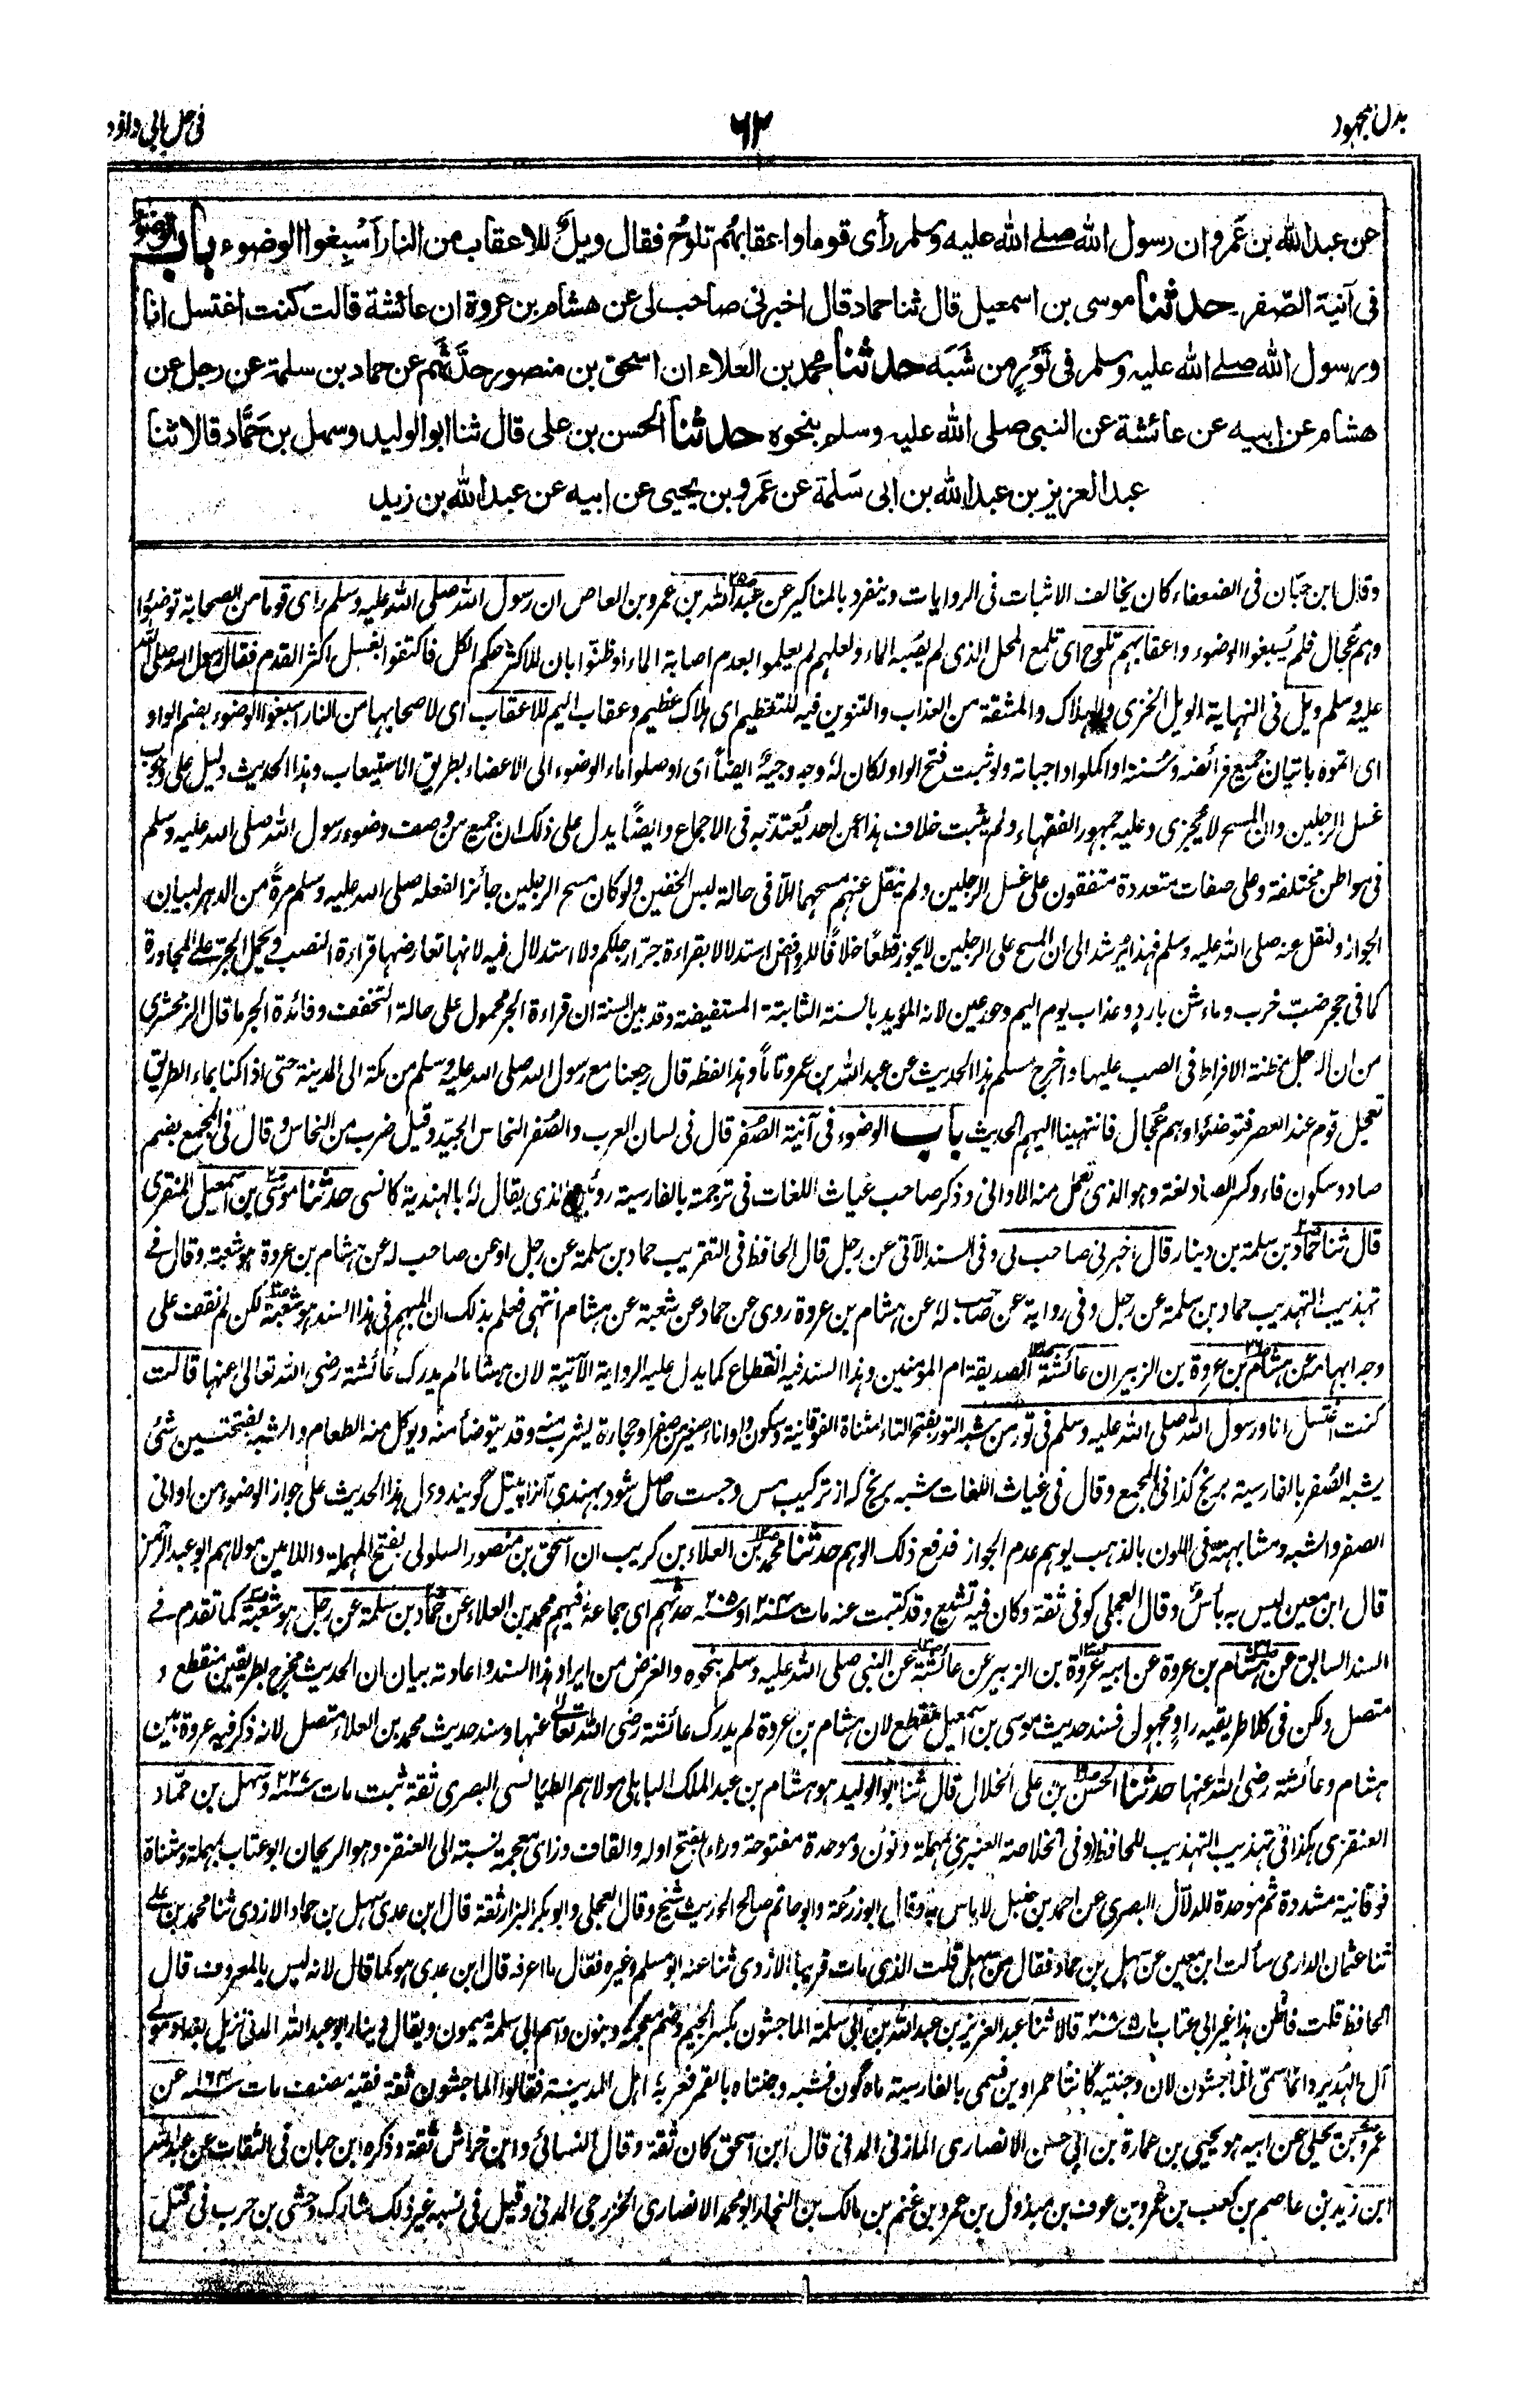 بذل المجهود
٦٢
في حل ابي داؤد
عن عبد الله بن عَمرو ان رسول الله صلى الله عليه وسلم رأى قوما واعقابهم تلوح فقال ويل للاعقاب من النار اَسْبِغوا الوضوء باب الوضوء
فى آنية الصّفر حدثنا موسى بن اسمعيل قال ثنا حماد قال اخبرنى صاحب لى عن هشام بن عروة ان عائشة قالت كنت اغتسل انا
ورسول الله صلى الله عليه وسلم فى تَوْرٍ من شَبَه حدثنا محمد بن العَلاء ان اسحق بن منصور حدَّثهم عن حماد بن سلمة عن رجل عن
هشام عن ابيه عن عائشة عن النبى صلى الله عليه وسلم بنحوه حدثنا الحسن بن على قال ثنا ابو الوليد وسهل بن حَمَّاد قالا ثنا
عبد العزيز بن عبد الله بن ابى سَلَمة عن عَمرو بن يحيى عن ابيه عن عبد الله بن زيد
وقال ابن حبّان فى الضعفاء كان يخالف الاثبات فى الروايات وينفرد بالمناكير عن عبد الله بن عمرو بن العاص ان رسول الله صلى الله عليه وسلم رأى قوما من الصحابة توضؤا
وهم عُجال فلم يُسبغوا الوضوء واعقابهم تلوح اى تلمع المحل الذى لم يصبه الماء ولعلهم لم يعلموا بعدم اصابة الماء او ظنّوا بان للاكثر حكم الكل فاكتفوا بغسل اكثر القدم فقال رسول الله صلى الله
عليه وسلم ويل فى النهاية الويل الخزى والهلاك والمشقة من العذاب والتنوين فيه للتعظيم اى هلاك عظيم وعقاب اليم للاعقاب اى لاصحابها من النار اسبغوا الوضوء بضم الواو
اى اتموه باتيان جميع فرائضه وسُننه او اكملوا واجباته ولو ثبت فتح الواو لكان له وجه وجيه ايضاً اى اوصلوا ماء الوضوء الى الاعضاء بطريق الاستيعاب وهذا الحديث دليل على وجوب
غسل الرجلين وان المسح لا يجزى وعليه جمهور الفقهاء ولم يثبت خلاف هذا عن احد يُعتدّ به فى الاجماع وايضًا يدل على ذلك ان جميع من وصف وضوء رسول الله صلى الله عليه وسلم
فى مواطن مختلفة وعلى صفات متعددة متفقون على غسل الرجلين ولم ينقل عنهم مسحهما الّا فى حالة لبس الخفين ولو كان مسح الرجلين جائزا لفعله صلى الله عليه وسلم مرةً من الدهر لبيان
الجواز ولنقل عنه صلى الله عليه وسلم فهذا يُرشد الى ان المسح على الرجلين لا يجوز قطعًا خلافًا للروافض استدلالا بقراءة جرّ ارجلكم ولا استدلال فيه لانها تعارضها قراءة النصب ويحمل الجر على المجاورة
كما فى جحر ضبّ خرب وماء شن بارد وعذاب يوم اليم وحور عين لانه المؤيد بالسنة الثابتة المستفيضة وقد بين السنة ان قراءة الجر محمول على حالة التخفف وفائدة الجر ما قال الزمخشرى
من ان الرجل مظنة الافراط فى الصب عليها واخرج مسلم هذا الحديث عن عبد الله بن عمرو تاماً وهذا لفظه قال رجعنا مع رسول الله صلى الله عليه وسلم من مكة الى المدينة حتى اذا كنا بماء الطريق
تعجل قوم عند العصر فتوضئوا وهم عُجال فانتهينا اليهم الحديث باب الوضوء فى آنية الصُفر قال فى لسان العرب والصُفر النحاس الجيّد وقيل ضرب من النحاس وقال فى المجمع بضم
صاد وسكون فاء وكسر الصاد لغة وهو الذى تعمل منه الاوانى وذكر صاحب غياث اللغات فى ترجمة بالفارسية الذى يقال له بالهندية كانسى حدثنا موسى بن اسمعيل المنقرى
قال ثنا حماد بن سلمة بن دينار قال اخبرنى صاحب لى وفى السند الآتى عن رجل قال الحافظ فى التقريب حماد بن سلمة عن رجل او عن صاحب له عن هشام بن عروة هو شعبة وقال فى
تهذيب التهذيب حماد بن سلمة عن رجل وفى رواية عن صاحب له عن هشام بن عروة روى عن حماد عن شعبة عن هشام انتهى فعلم بذلك ان المبهم فى هذا السند هو شعبة لكن لم نقف على
وجه ابهامه عن هشام بن عروة بن الزبير ان عائشة الصديقة ام المؤمنين وهذا السند فيه انقطاع كما يدل عليه الرواية الآتية لان هشاما لم يدرك عائشة رضى الله تعالى عنها قالت
كنت اغتسل انا ورسول الله صلى الله عليه وسلم فى تور من شبه التور بفتح التاء المثناة الفوقانية وسكون واو اناء صغير من صفر او حجارة يشرب منه وقد يتوضأ منه ويوكل منه الطعام والشبه بفتحتين شئ
يشبه الصُفر بالفارسية برنج كذا فى المجمع وقال فى غياث اللغات شبه برنج كه از تركيب مس وجست حاصل شود بهندى آنرا پيتل گويند ودل هذا الحديث على جواز الوضوء من اوانى
الصفر والشبه ومشابهته فى اللون بالذهب يوهم عدم الجواز فدفع ذلك الوهم حدثنا محمد بن العلاء بن كريب ان اسحق بن منصور السلولى بفتح المهملة واللامين مولاهم ابو عبد الرحمن
قال ابن معين ليس به بأس وقال العجلى كوفى ثقة وكان فيه تشيع وقد كتبت عنه مات سنة ٢٠٤ او سنة ٢٠٥ حدثهم اى جماعة فيهم محمد بن العلاء عن حماد بن سلمة عن رجل هو شعبة كما تقدم فى
السند السابق عن هشام بن عروة عن ابيه عروة بن الزبير عن عائشة عن النبى صلى الله عليه وسلم بنحوه والغرض من ايراد هذا السند واعادته بيان ان الحديث مخرج بطريقين منقطع و
متصل ولكن فى كلا طريقيه راو مجهول فسند حديث موسى بن اسمعيل منقطع لان هشام بن عروة لم يدرك عائشة رضى الله تعالى عنها وسند حديث محمد بن العلاء متصل لانه ذكر فيه عروة بين
هشام وعائشة رضى الله عنها حدثنا الحسن بن على الخلال قال ثنا ابو الوليد هو هشام بن عبد الملك الباهلى مولاهم الطيالسى البصرى ثقة ثبت مات سنة ٢٢٧ وسهل بن حمّاد
العنقزى هكذا فى تهذيب التهذيب للحافظ (وفى الخلاصة العنبرى بمهملة ونون وموحدة مفتوحة وراء) بفتح اوله والقاف وزاى معجمة نسبة الى العنقز وهو الريحان ابو عتاب بمهملة ومثناة
فوقانية مشددة ثم موحدة الدلّال البصرى عن احمد بن حنبل لا باس به وقال ابو زرعة وابو حاتم صالح الحديث شيخ وقال العجلى وابو بكر البزار ثقة قال ابن عدى سهل بن حماد الازدى ثنا محمد بن على
ثنا عثمان الدارمى سألت ابن معين عن سهل بن حماد فقال من سهل قلت الذى مات قريبا الازدى ثنا عنه ابو مسلم وغيره فقال ما اعرفه قال ابن عدى هو كما قال لانه ليس بالمعروف قال
الحافظ قلت فاظن هذا غير ابى عتاب مات سنة ٢٠٨ قالا ثنا عبد العزيز بن عبد الله بن ابى سلمة الماجشون بكسر الجيم وضم معجمة وبنون واسم ابى سلمة ميمون ويقال دينار ابو عبد الله المدنى نزيل بغداد مولى
آل الهُدير وانما سمى الماجشون لان وجنتيه كانتا حمراوين فسمى بالفارسية ماه گون فشبه وجنتاه بالقمر فعربه اهل المدينة فقالوا الماجشون ثقة فقيه مصنف مات سنة ١٦٤ عن
عمرو بن يحيى عن ابيه هو يحيى بن عمارة بن ابى حسن الانصارى المازنى المدنى قال ابن اسحق كان ثقة وقال النسائى وابن خراش ثقة وذكره ابن حبان فى الثقات عن عبد الله
ابن زيد بن عاصم بن كعب بن عمرو بن عوف بن مبذول بن عمرو بن غنم بن مالك بن النجار ابو محمد الانصارى الخزرجى المدنى وقيل فى نسبه غير ذلك شارك وحشى بن حرب فى قتل